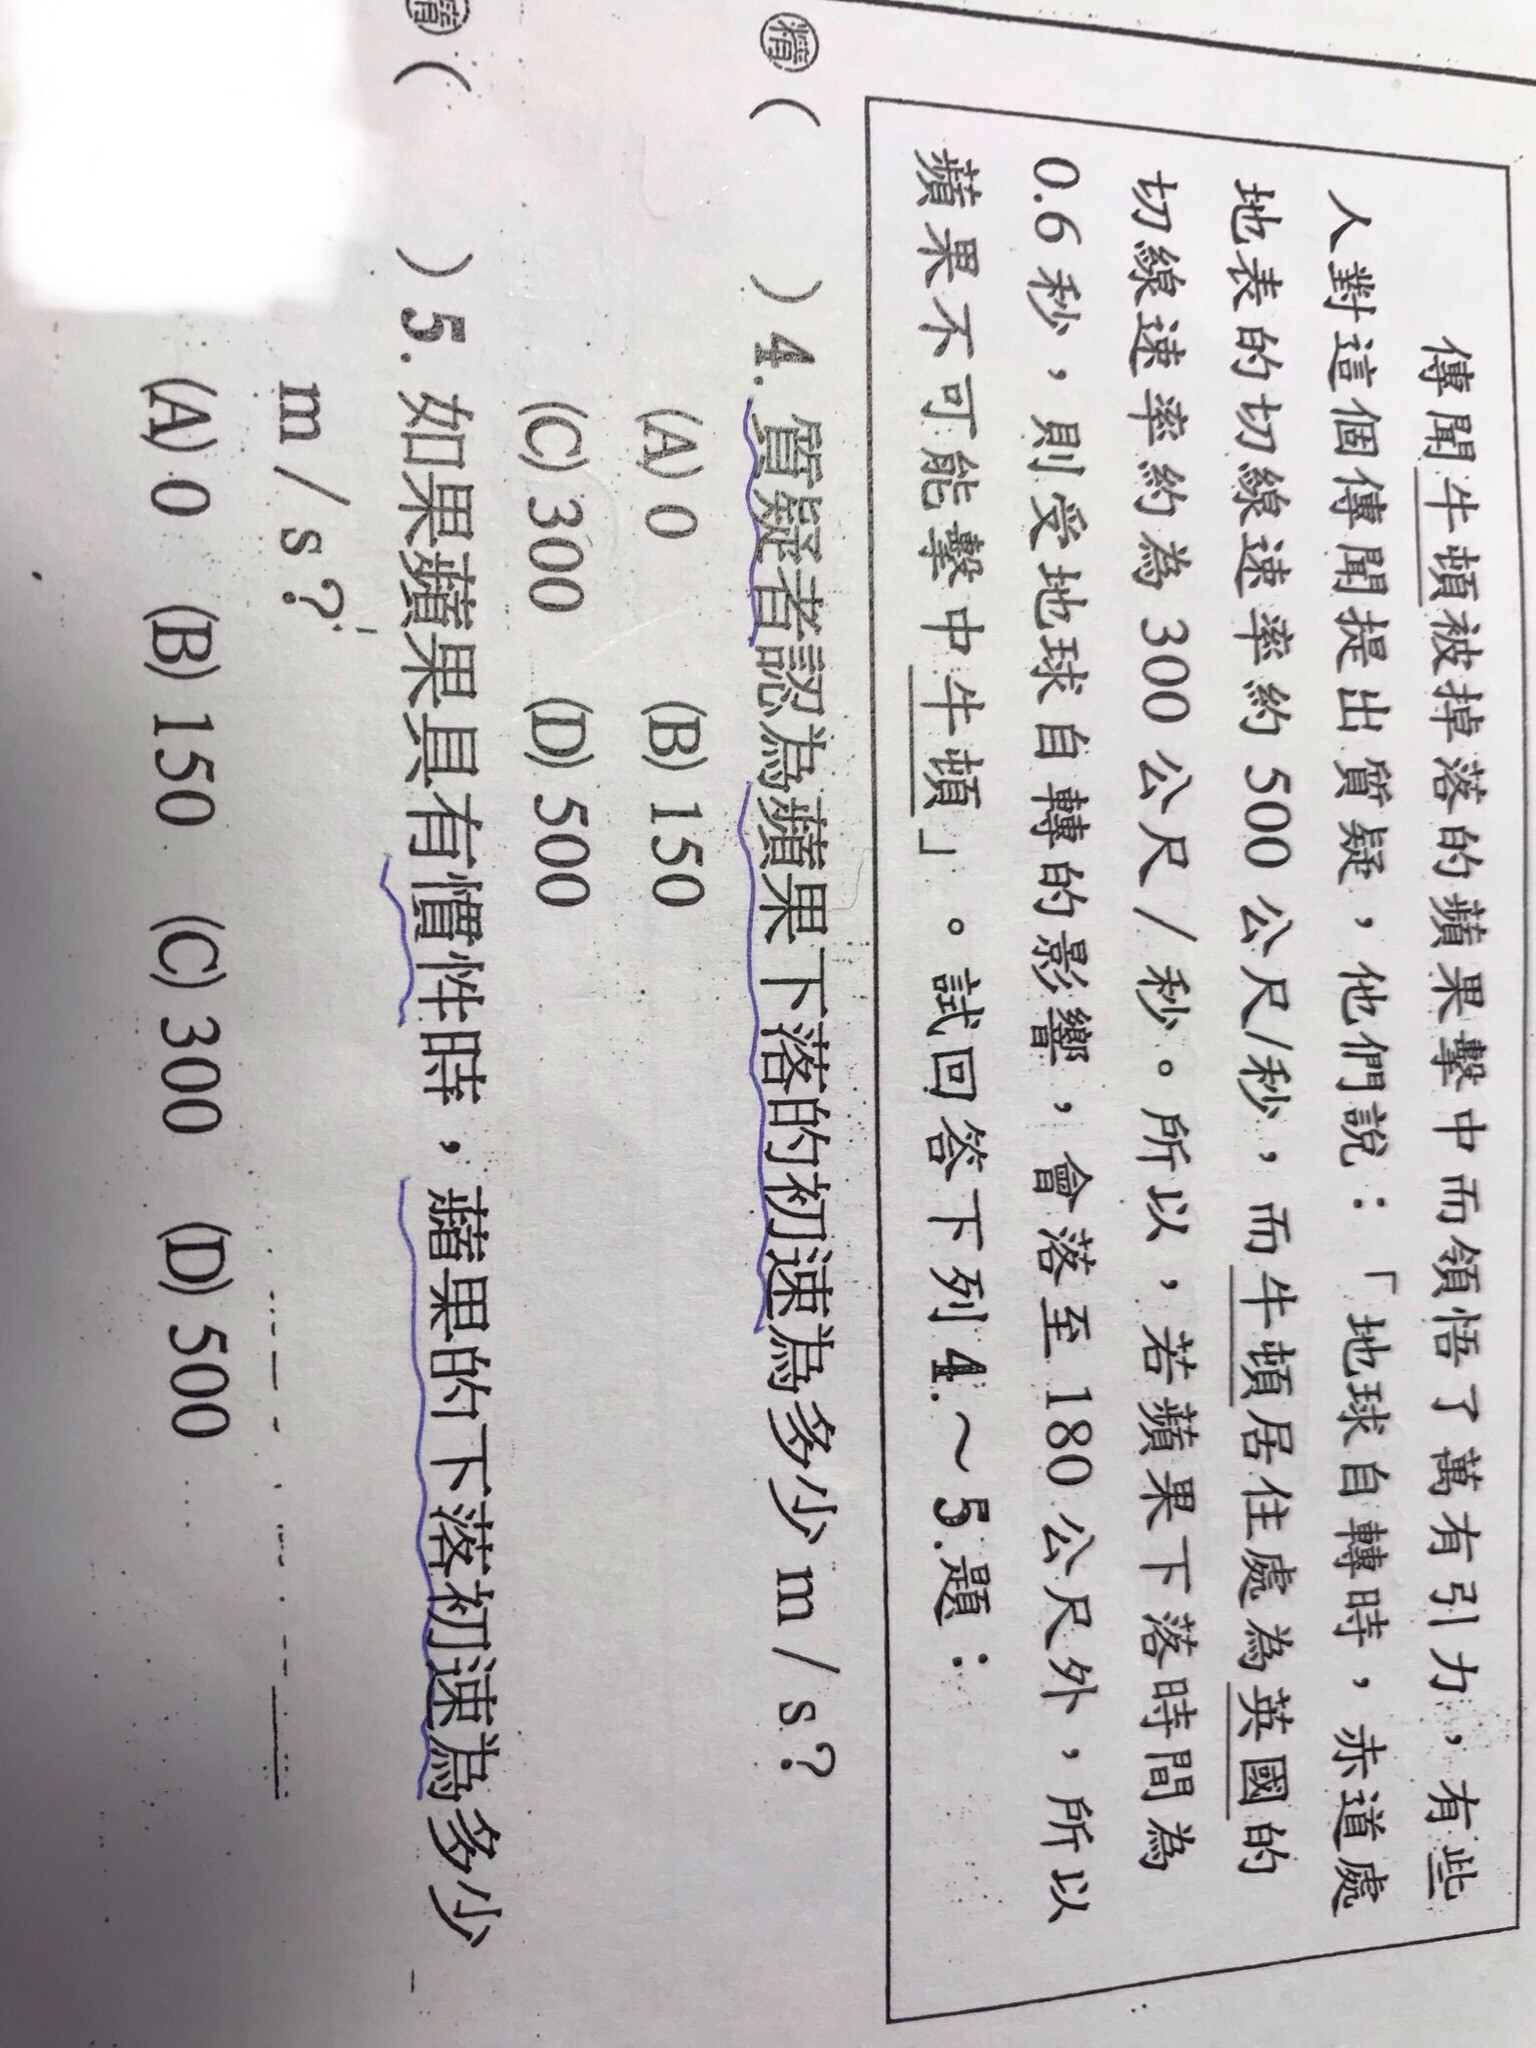 傳聞牛頓被掉落的蘋果擊中而領悟了萬有引力,有些
人對這個傳聞提出質疑,他們說:「地球自轉時,赤道處
地表的切線速率約500公尺/秒,而牛頓居住處為英國的
切線速率約為300公尺/秒。所以,若蘋果下落時間為
0.6秒,則受地球自轉的影響,會落至180公尺外,所以
蘋果不可能擊中牛頓」。試回答下列4.~5.題:
精( )4.質疑者認為蘋果下落的初速為多少m/s?
(A) 0 (B) 150
(C) 300 (D) 500
精( )5.如果蘋果具有慣性時,蘋果的下落初速為多少
m/s?
(A) 0 (B) 150 (C) 300 (D) 500